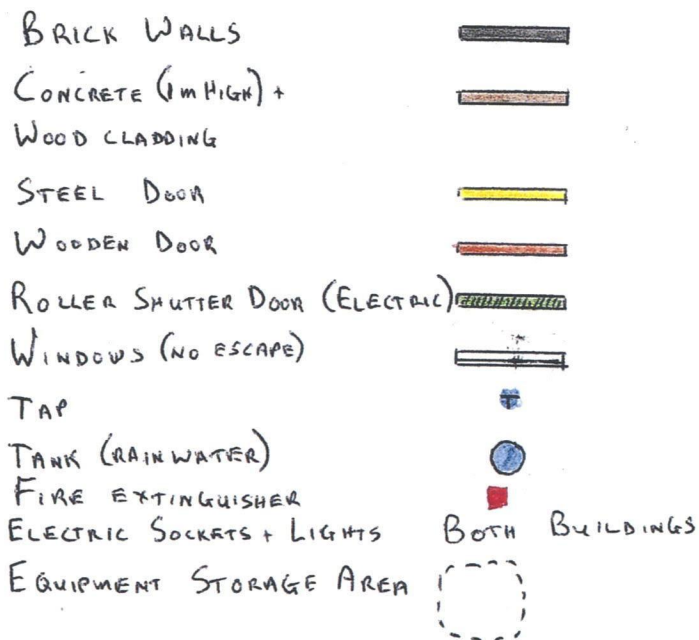 BRICK WALLS
CONCRETE (1m HIGH) +
WOOD CLADDING
STEEL DOOR
WOODEN DOOR
ROLLER SHUTTER DOOR (ELECTRIC)
WINDOWS (NO ESCAPE)
TAP
T
TANK (RAINWATER)
FIRE EXTINGUISHER
ELECTRIC SOCKETS + LIGHTS BOTH BUILDINGS
EQUIPMENT STORAGE AREA